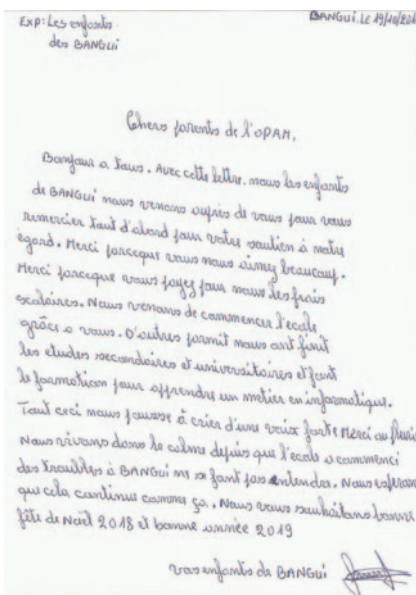 Exp: Les enfants
BANGUI, LE 19/10/201
des BANGUI
Chers parents de l'OPAM,
Bonjour a tous. Avec cette lettre, nous les enfants
de BANGUI nous venons auprès de vous pour vous
remercier tout d'abord pour votre soutien à notre
égard. Merci parceque vous nous aimez beaucoup.
Merci parceque vous payez pour nous les frais
scolaires. Nous venons de commencer l'ecole
grâce a vous. D'autres parmit nous ont finit
les etudes secondaires et universitaires et font
le formation pour apprendre un metier en informatique.
Tout ceci nous pousse à crier d'une voix forte Merci au
Nous vivons dans le calme depuis que l'école a commencé
des troubles à BANGUI ne se font pas entendre. Nous espéron
que cela continue comme ça. Nous vous souhaitons bonne
fête de Noël 2018 et bonne année 2019
vos enfants de BANGUI